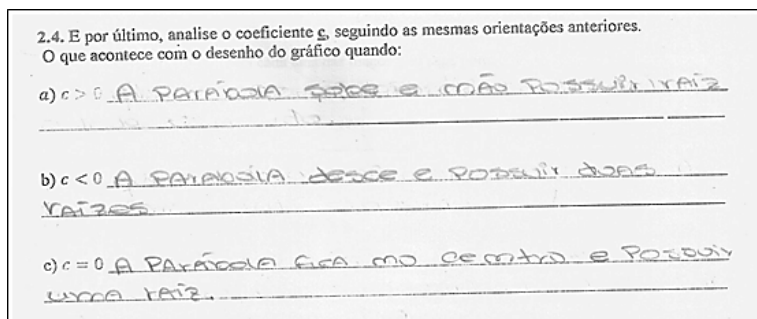 2.4. E por último, analise o coeficiente c, seguindo as mesmas orientações anteriores.
O que acontece com o desenho do gráfico quando:
a) c > 0 A Parábola sobe e não Possuir raiz
b) c < 0 A Parabola desce e possuir duas
raízes
c) c = 0 A Parábola fica no centro e Possuir
uma raiz.